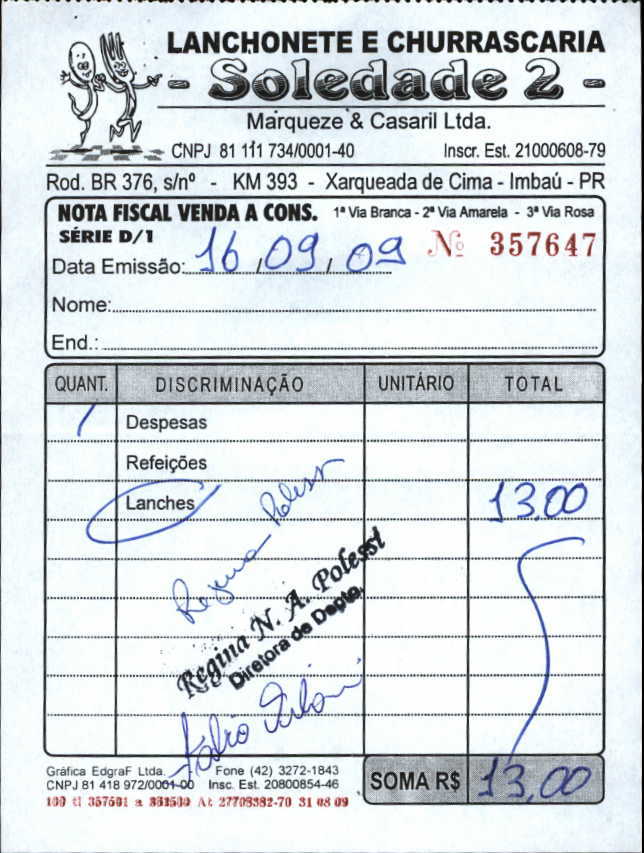 LANCHONETE E CHURRASCARIA
- Soledade 2 -
Marqueze & Casaril Ltda.
CNPJ 81 111 734/0001-40 Inscr. Est. 21000608-79
Rod. BR 376, s/nº - KM 393 - Xarqueada de Cima - Imbaú - PR
NOTA FISCAL VENDA A CONS. 1ª Via Branca - 2ª Via Amarela - 3ª Via Rosa
SÉRIE D/1
Nº 357647
Data Emissão: 16/09/09
Nome:
End.:
QUANT. DISCRIMINAÇÃO UNITÁRIO TOTAL
Despesas
Refeições
Lanches 13,00
Regina Polessi
Regina N. A. Polessi
Diretora de Depto.
Fábio
Gráfica EdgraF Ltda. Fone (42) 3272-1843
CNPJ 81 418 972/0001-00 Insc. Est. 20800854-46
100 tl 357501 a
31 08 09
SOMA R$ 13,00